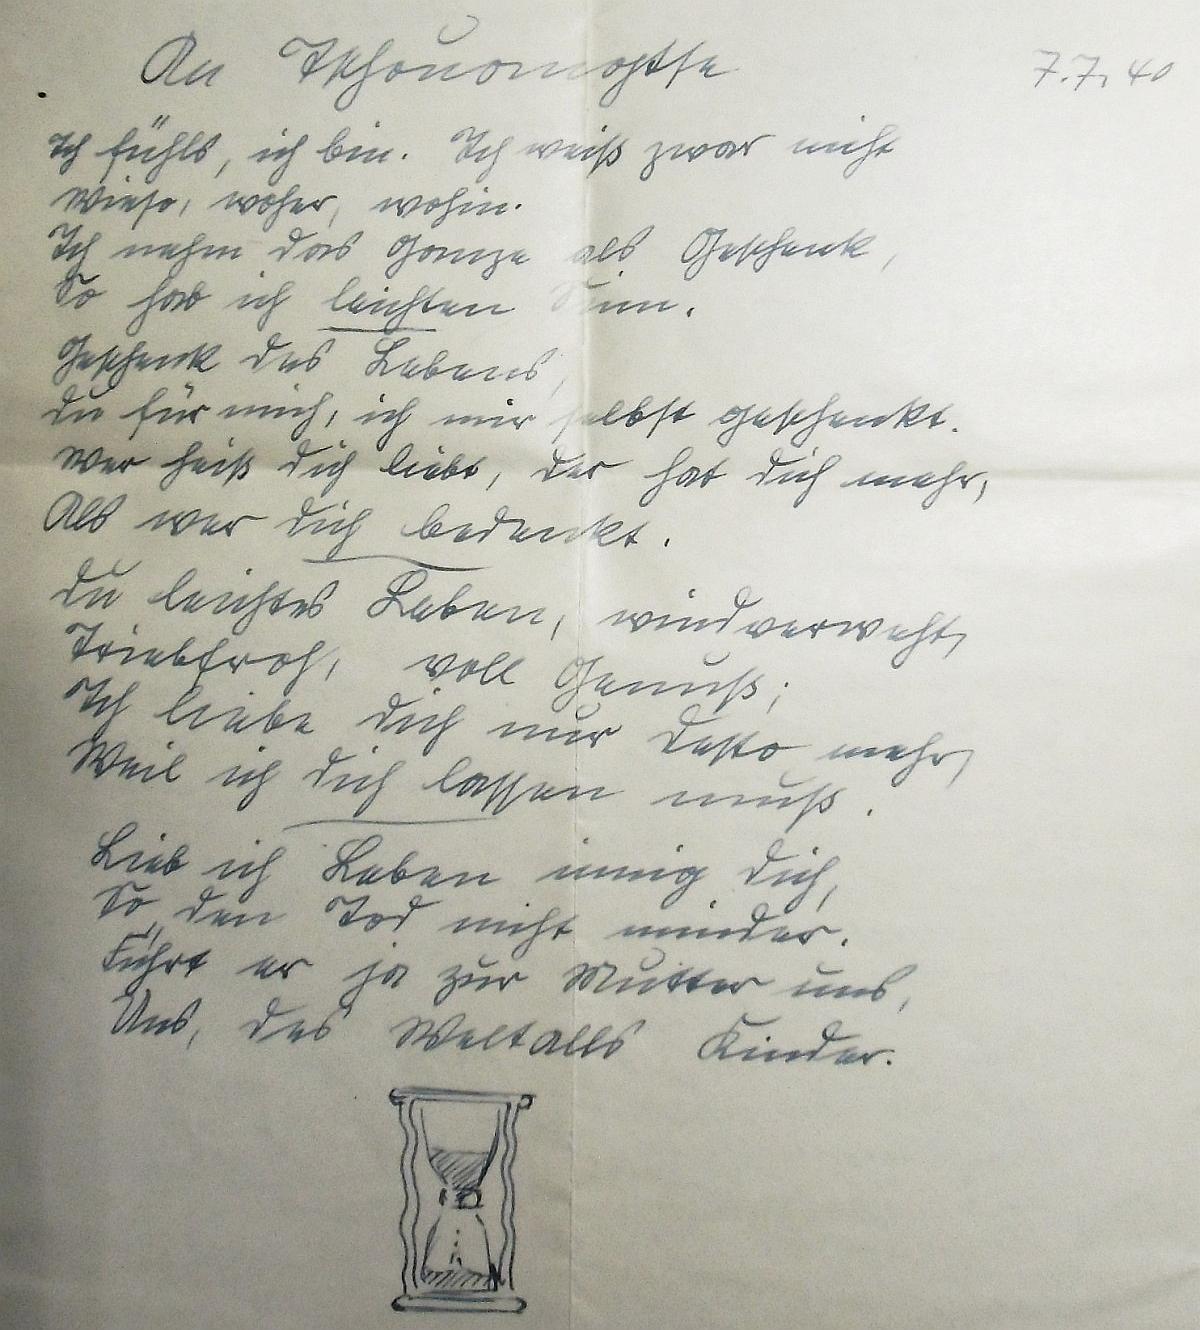 An Tschouomohtse 7.7.40
Ich fühls, ich bin. Ich weiß zwar nicht
Wieso, woher, wohin.
Ich nehm das Ganze als Geschenk,
So hab ich leichten Sinn.
Geschenk des Lebens,
Du für mich, ich mir selbst geschenkt.
Wer heiß dich liebt, der hat dich mehr,
Als wer dich bedenkt.
Du leichtes Leben, windverweht,
Triebfroh, voll Genuß;
Ich liebe dich nur desto mehr,
Weil ich dich lassen muß.
Lieb ich Leben innig dich,
So den Tod nicht minder.
Führt er ja zur Mutter uns,
Uns, des Weltalls Kinder.